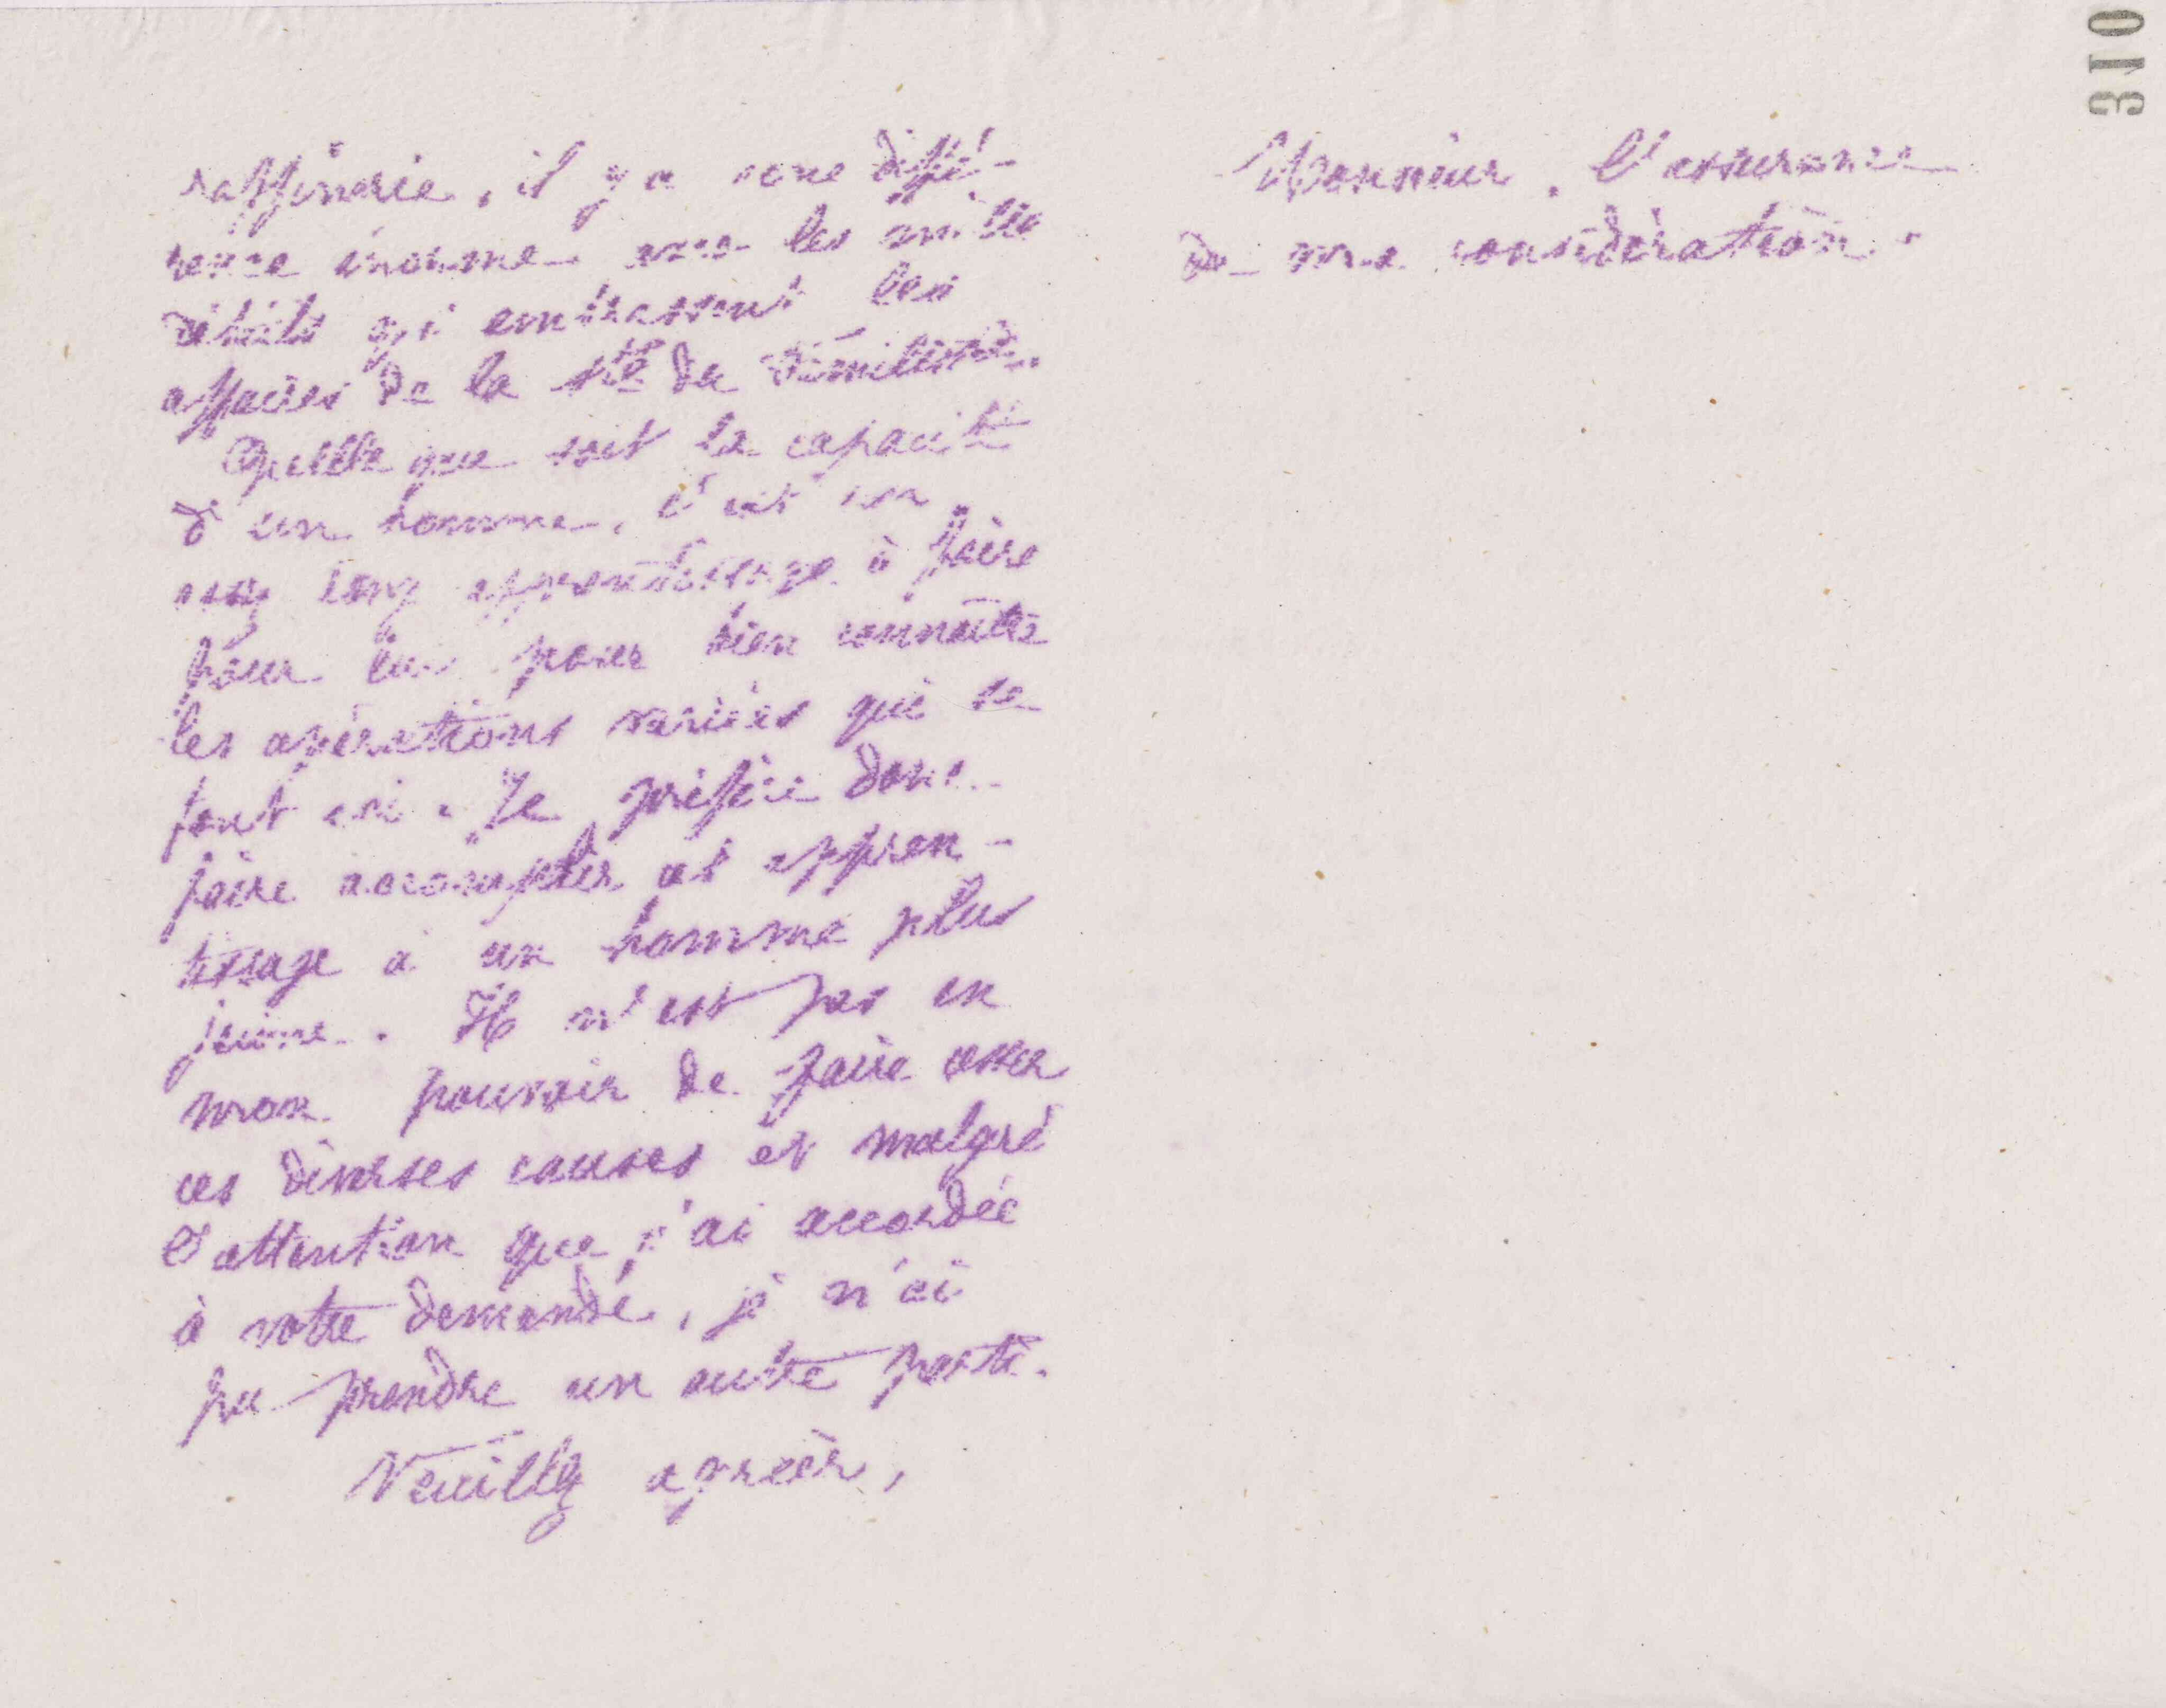 raffinerie, il y a une diffé-
rence énorme avec les mille
détails qui embrassent les
affaires de la sté du Familistère.
Quelle que soit la capacité
d'un homme, c'est un
long apprentissage à faire
pour lui pour bien connaître
les opérations variées qui se
font ici. Je préfère donc
faire accomplir cet appren-
tissage à un homme plus
jeune. Il n'est pas en
mon pouvoir de faire cesser
ces diverses causes et malgré
l'attention que j'ai accordée
à votre demande, je n'ai
pu prendre un autre parti.
Veuillez agréer,
Monsieur, l'assurance
de ma considération.
310